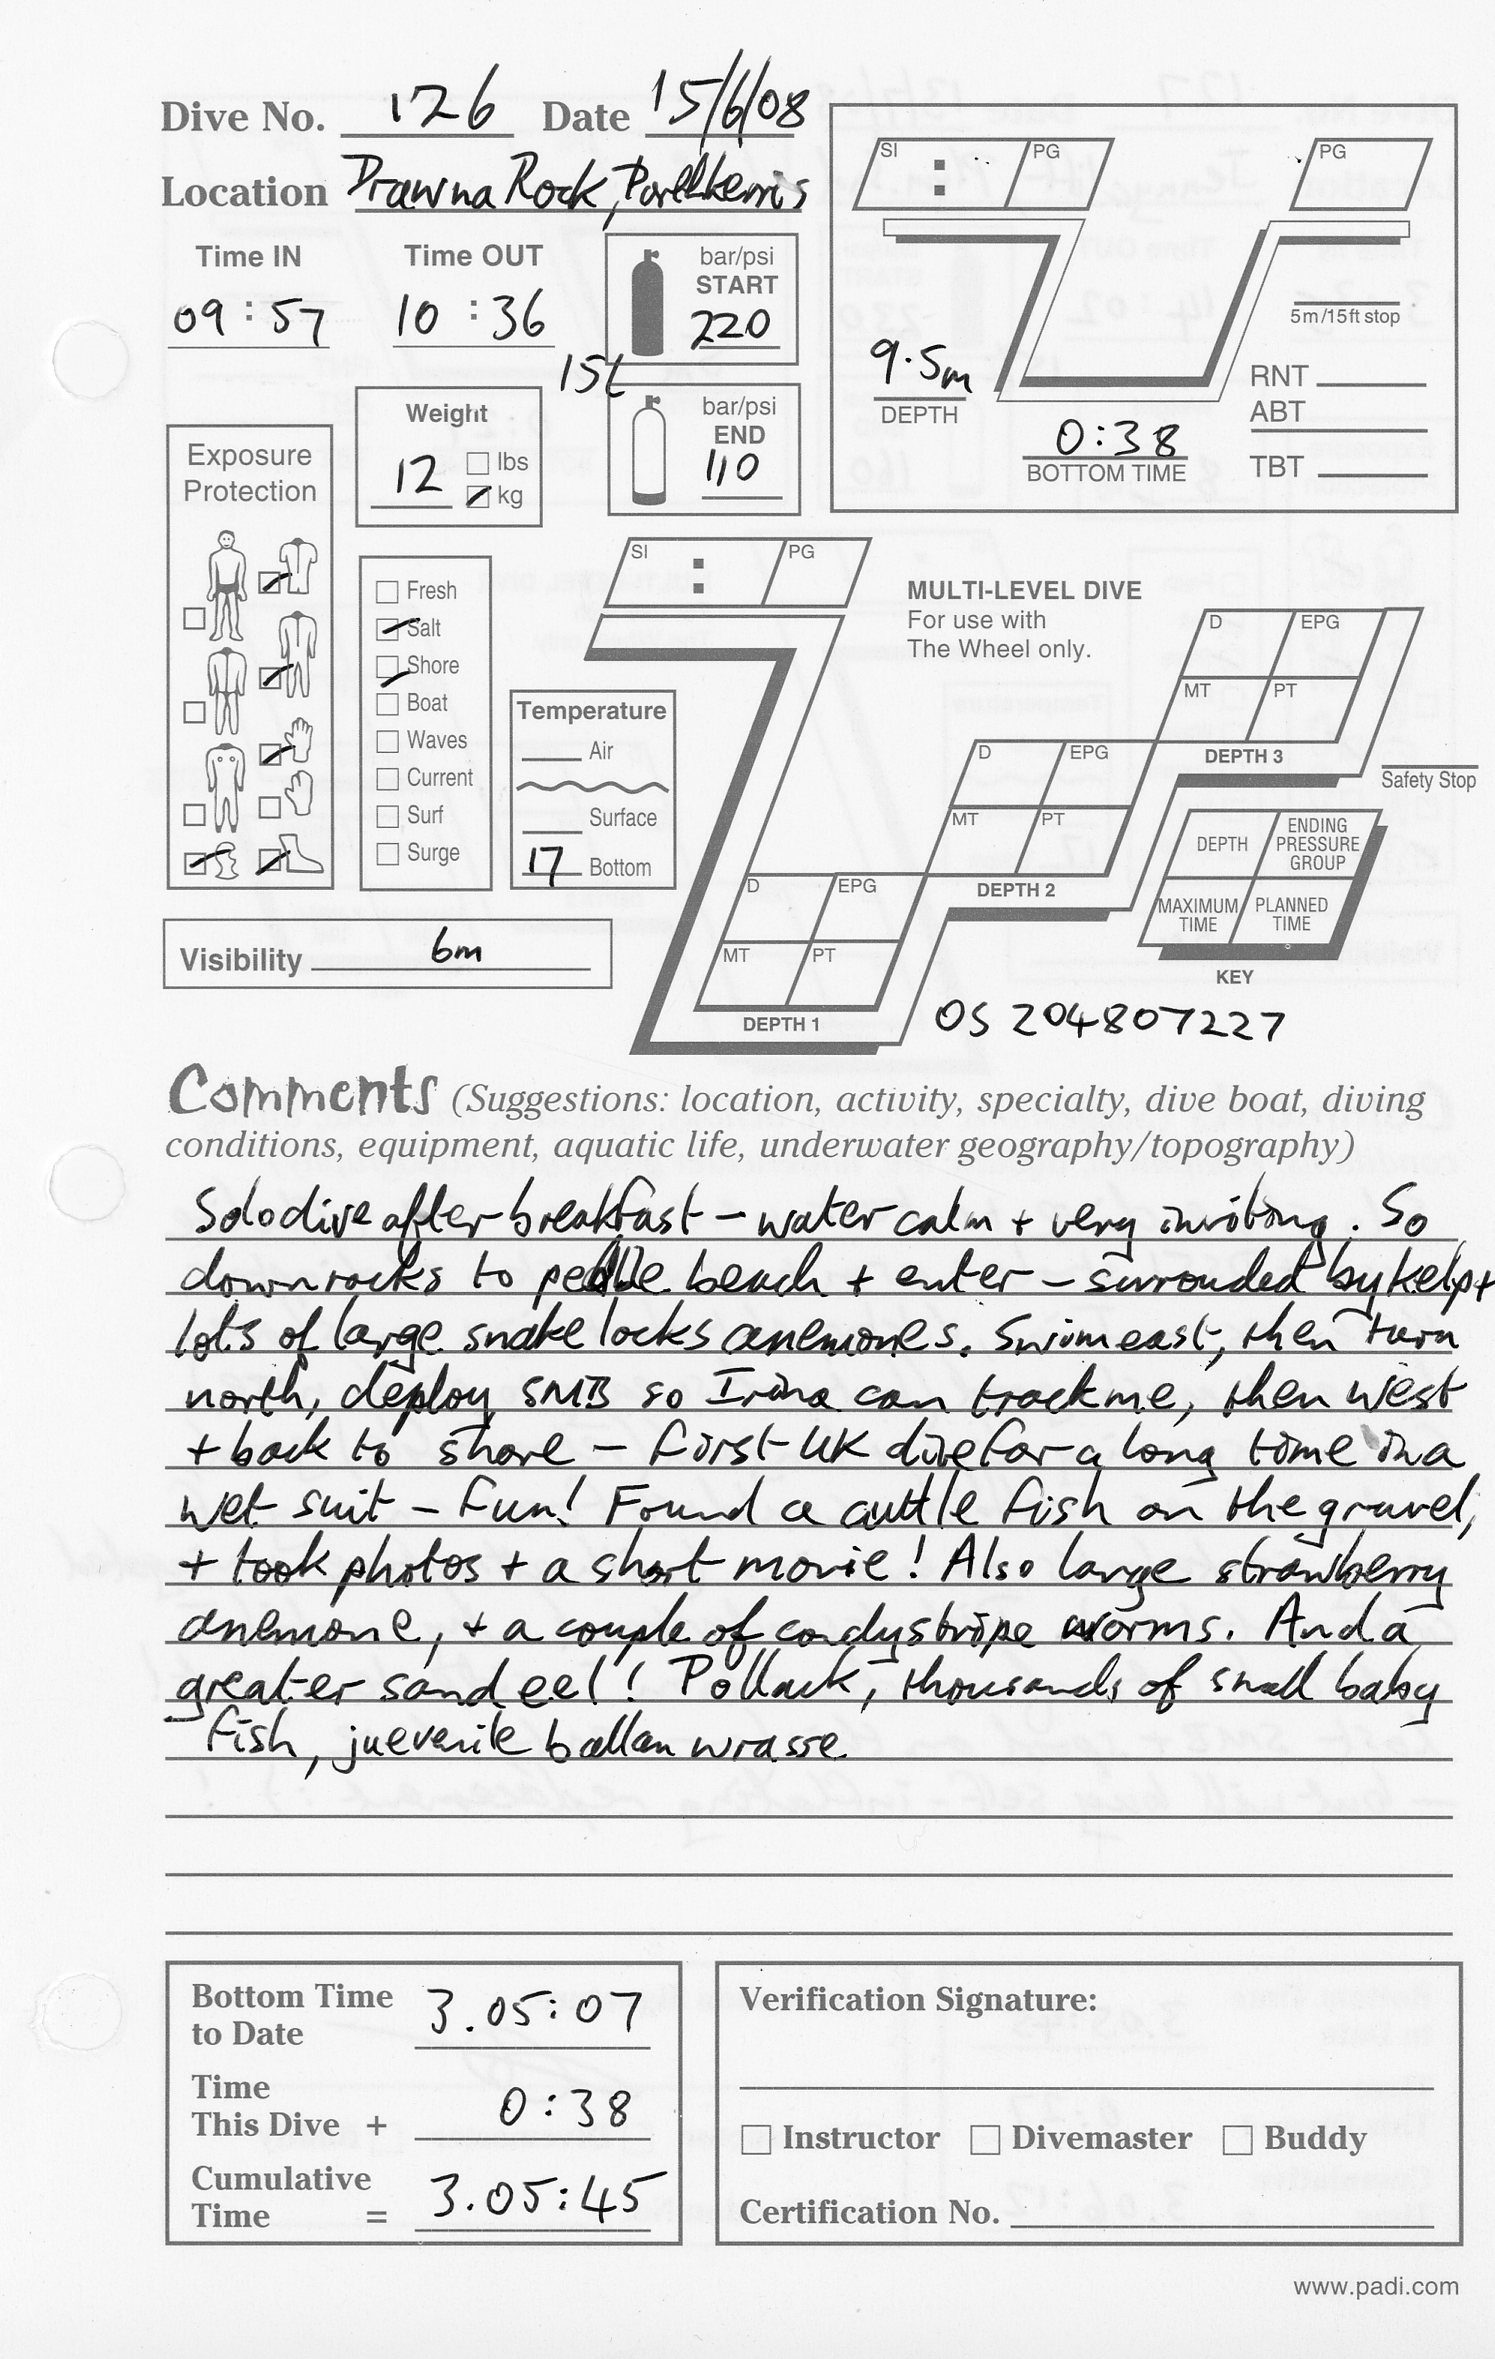 Dive No. 126 Date 15/6/08
Location Drawna Rock, Porthkerris
Time IN Time OUT
09:57 10:36
bar/psi
START
220
15L
bar/psi
END
110
Weight
12 lbs
kg
Exposure
Protection
Fresh
Salt
Shore
Boat
Waves
Current
Surf
Surge
Temperature
Air
Surface
17 Bottom
Visibility 6m
SI : PG PG
5m/15ft stop
9.5m
DEPTH
0:38
BOTTOM TIME
RNT
ABT
TBT
SI : PG
MULTI-LEVEL DIVE
For use with
The Wheel only.
D EPG
MT PT
DEPTH 3
Safety Stop
D EPG
MT PT
DEPTH 2
D EPG
MT PT
DEPTH 1
DEPTH ENDING PRESSURE GROUP
MAXIMUM TIME PLANNED TIME
KEY
OS 204807227
Comments (Suggestions: location, activity, specialty, dive boat, diving
conditions, equipment, aquatic life, underwater geography/topography)
Solo dive after breakfast – water calm + very inviting. So
down rocks to pebble beach + enter – surrouded by kelp +
lots of large snake locks anemones. Swim east, then turn
north, deploy SMB so Irina can track me, then west
+ back to shore – first UK dive for a long time in a
wet suit – fun! Found a cuttle fish on the gravel,
+ took photos + a short movie! Also large strawberry
anemone, + a couple of candystripe worms. And a
greater sand eel! Pollack, thousands of small baby
fish, juevenile ballan wrasse
Bottom Time
to Date 3.05:07
Time
This Dive + 0:38
Cumulative
Time = 3.05:45
Verification Signature:
Instructor Divemaster Buddy
Certification No.
www.padi.com